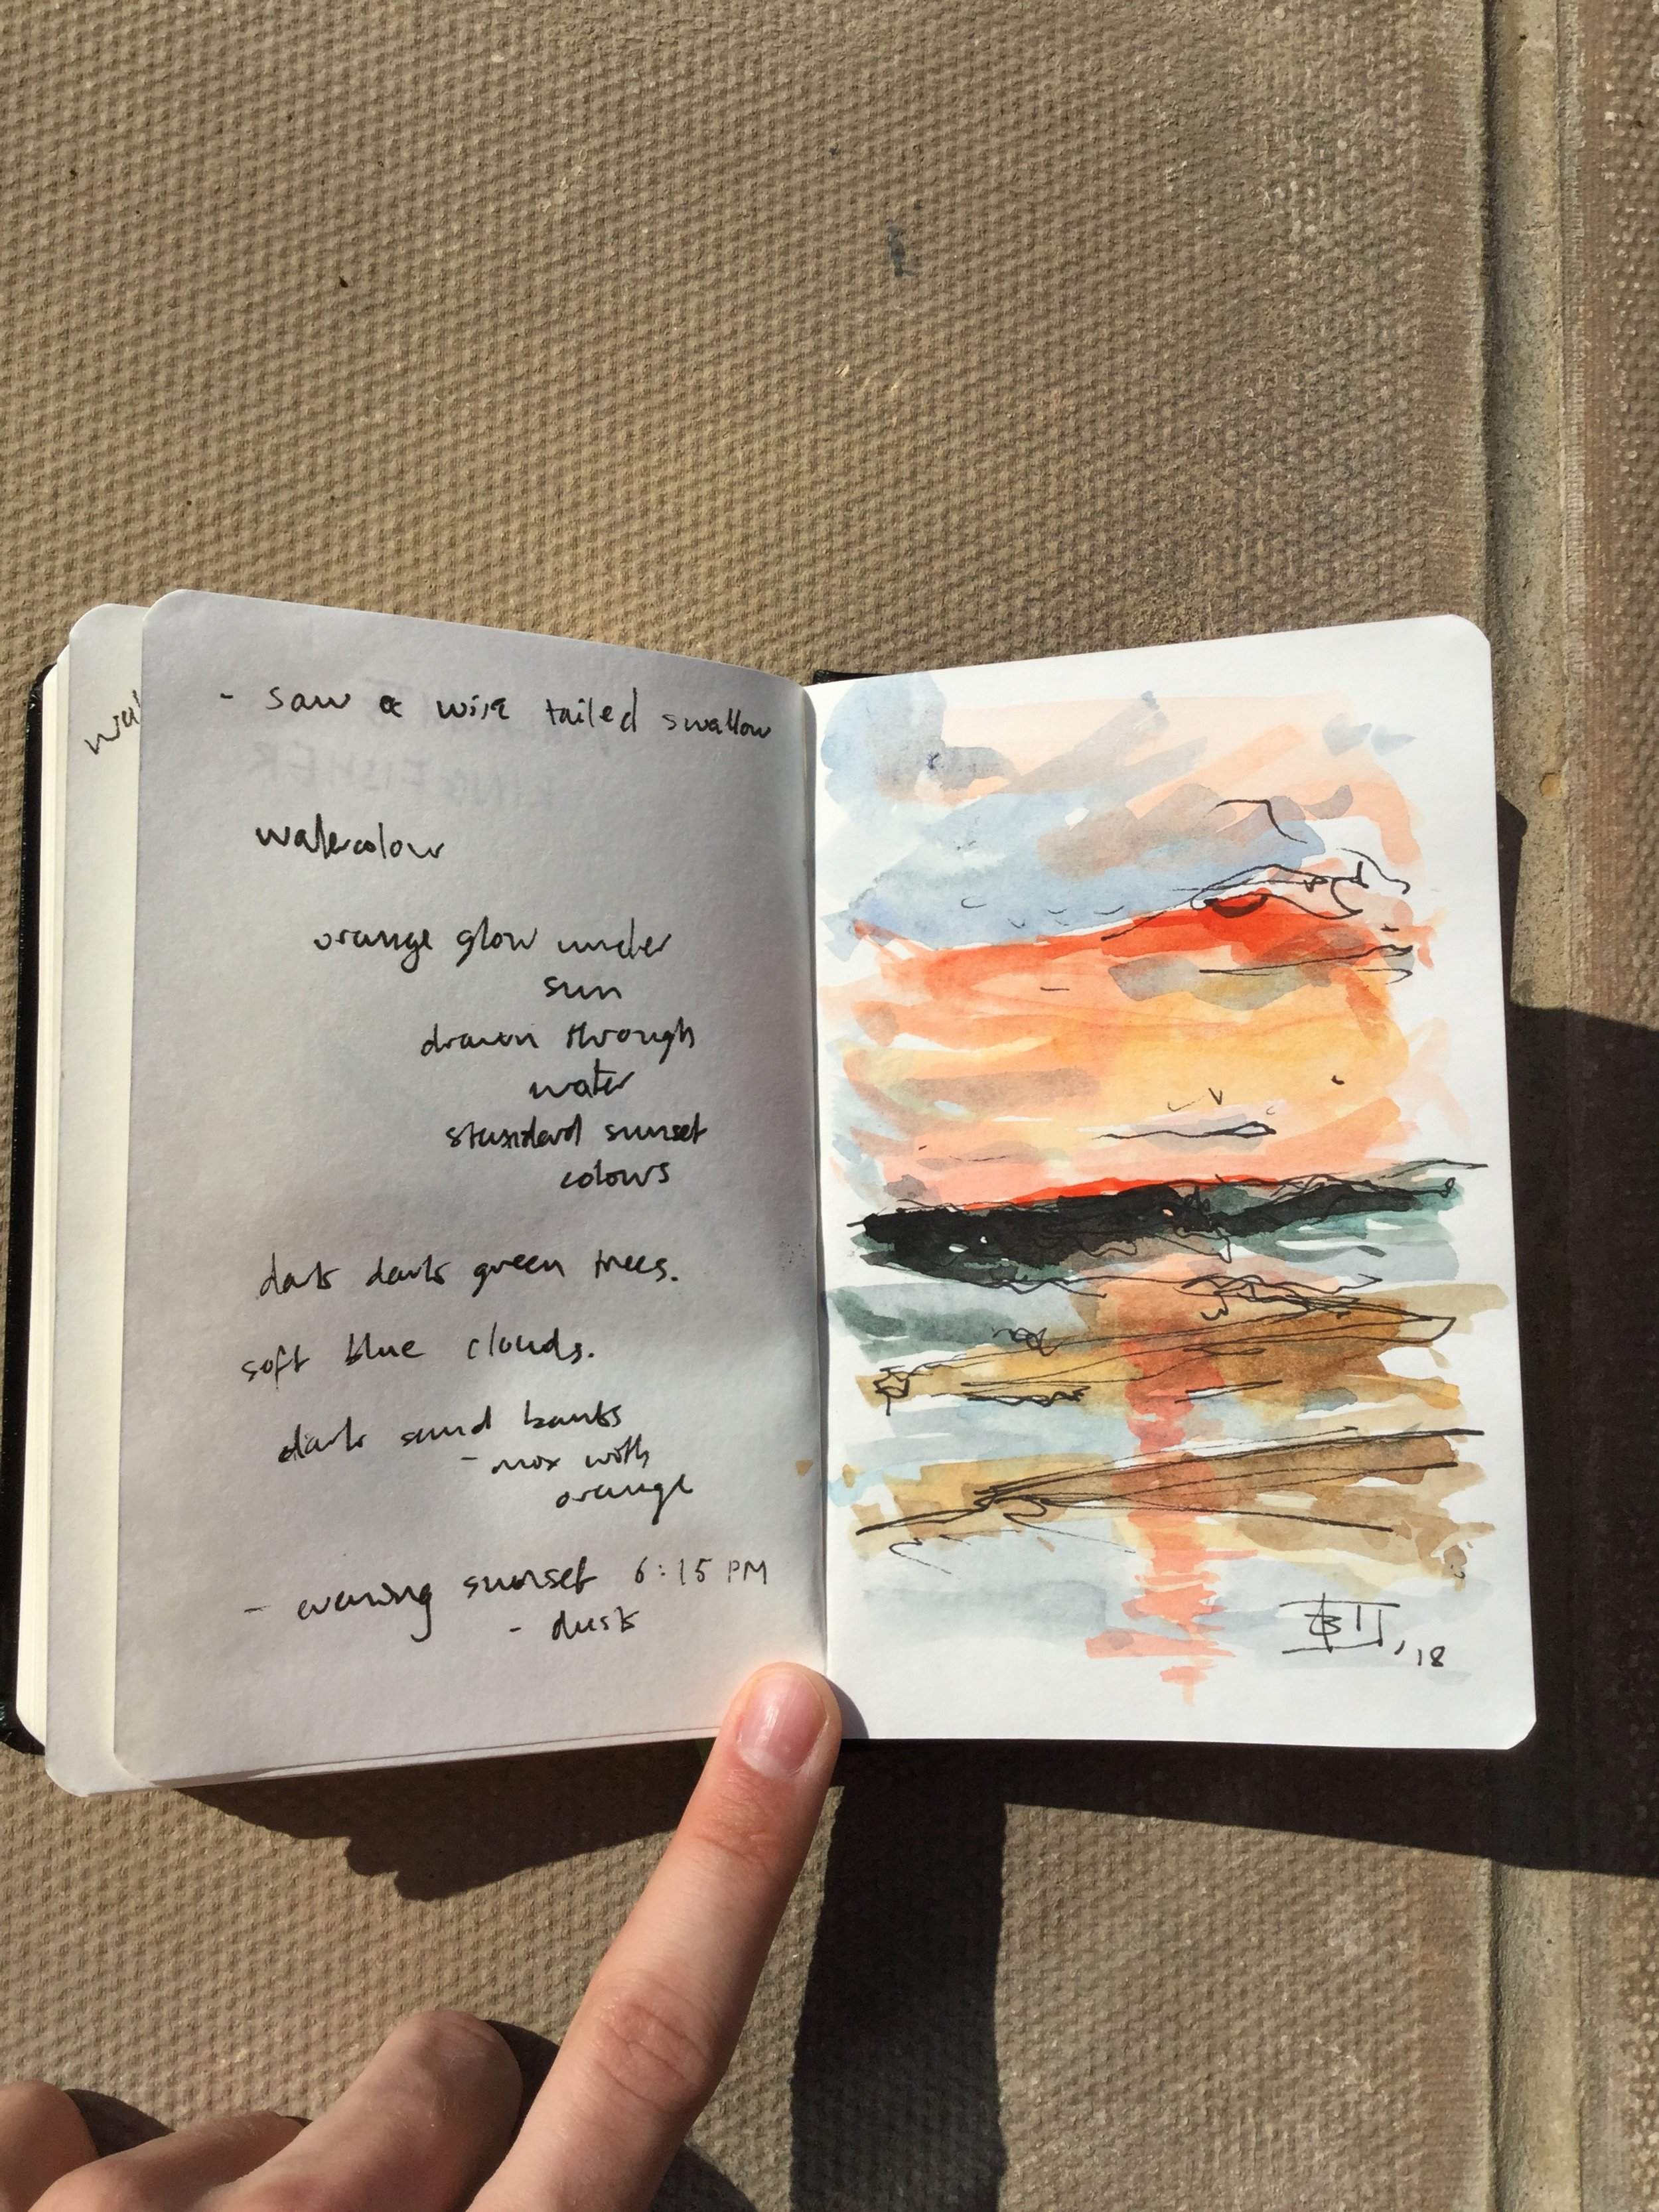 - saw a wire tailed swallow
watercolour
orange glow under
sun
drawn through
water
standard sunset
colours
dark dark green trees.
soft blue clouds.
dark sand banks
- mix with
orange
- evening sunset 6:15 PM
- dusk
KINGFISHER
, 18